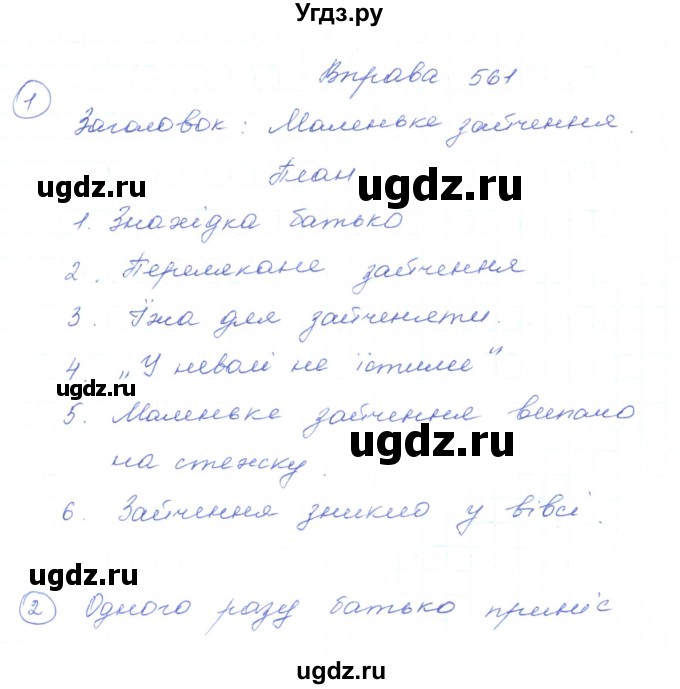 Угдз.ру
Вправа 561
1
Заголовок: Маленьке зайчення.
ugdz.ru
План
ugdz.ru
1. Знахідка батько
2. Перелякане зайчення
3. Їжа для зайченяти.
4 „У неволі не їстиме"
5. Маленьке зайчення випало
на стежку.
ugdz.ru
6. Зайчення зникло у вівсі.
ugdz.ru
2 Одного разу батько приніс
ugdz.ru